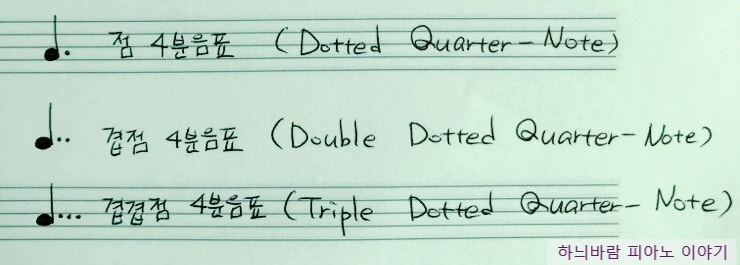 점 4분음표 (Dotted Quarter-Note)
겹점 4분음표 (Double Dotted Quarter-Note)
겹겹점 4분음표 (Triple Dotted Quarter-Note)
하늬바람 피아노 이야기